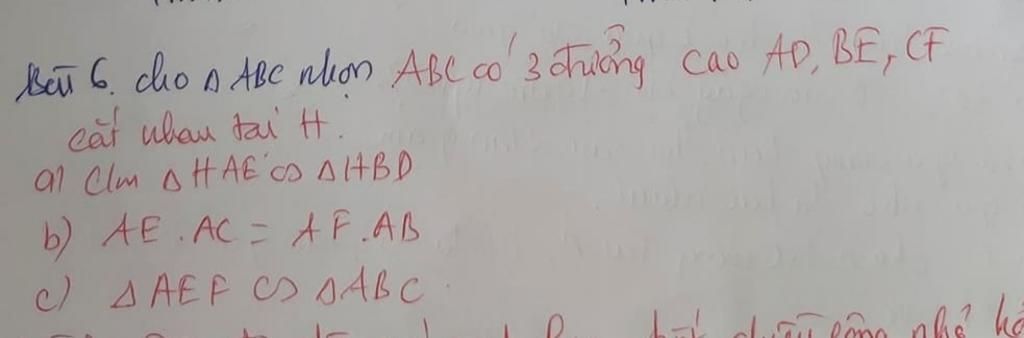 Bài 6. cho △ ABC nhọn ABC có 3 đường cao AD, BE, CF
cắt nhau tại H.
a) C/m △ HAE ∽ △ HBD
b) AE . AC = AF . AB
c) △ AEF ∽ △ ABC
nhỏ